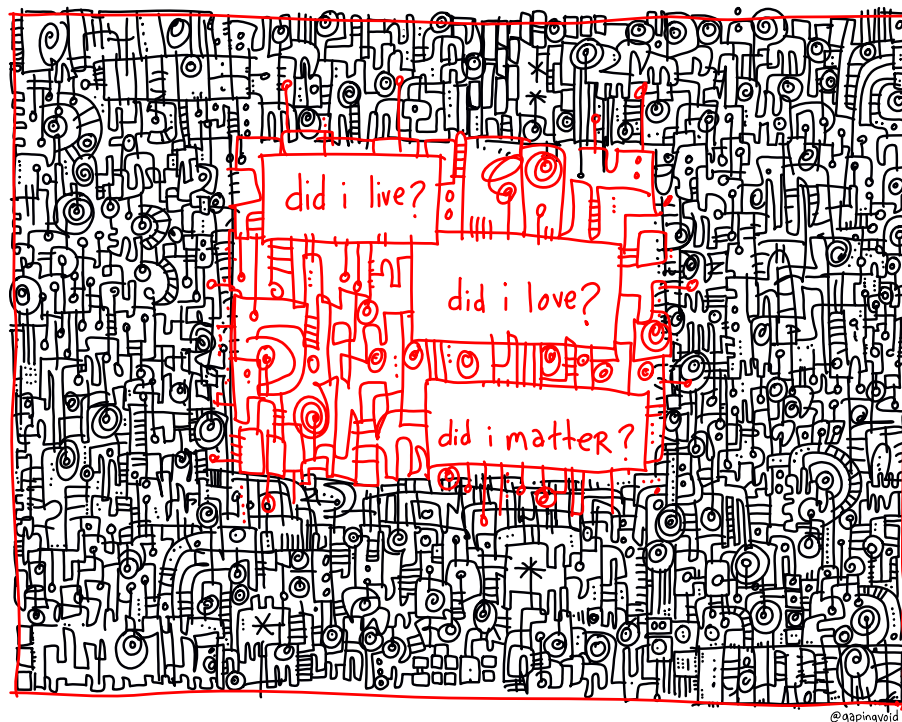 did i live?
did i love?
did i matter?
@gapingvoid